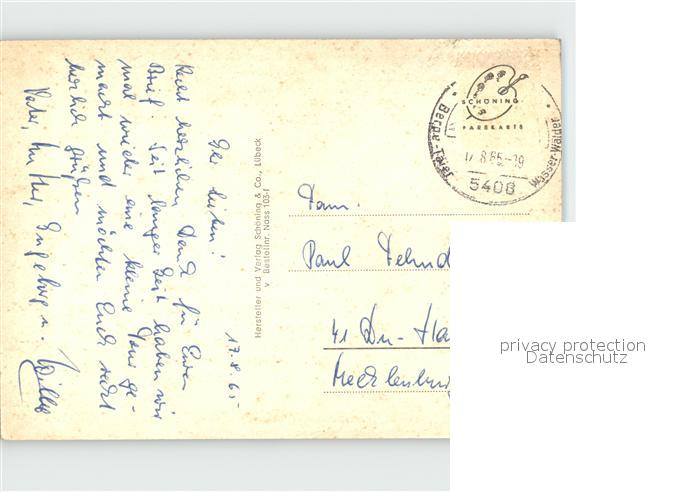 17.8.65
Ihr Lieben!
Recht herzlichen Dank für Euren
Brief. Seit langer Zeit haben wir
mal wieder eine kleine Tour ge-
macht und möchten Euch recht
herzlich grüßen
Vater, Mutter, Ingeborg u. Willi
Hersteller und Verlag Schöning & Co., Lübeck
v Bestellnr. Nass 105-f
SCHÖNING
FARBKARTE
Berge-Täler
Wasser-Wälder
17.8.65-19
5408
Fam.
Paul
41 Du-Ha
Mecklenburg
privacy protection
Datenschutz